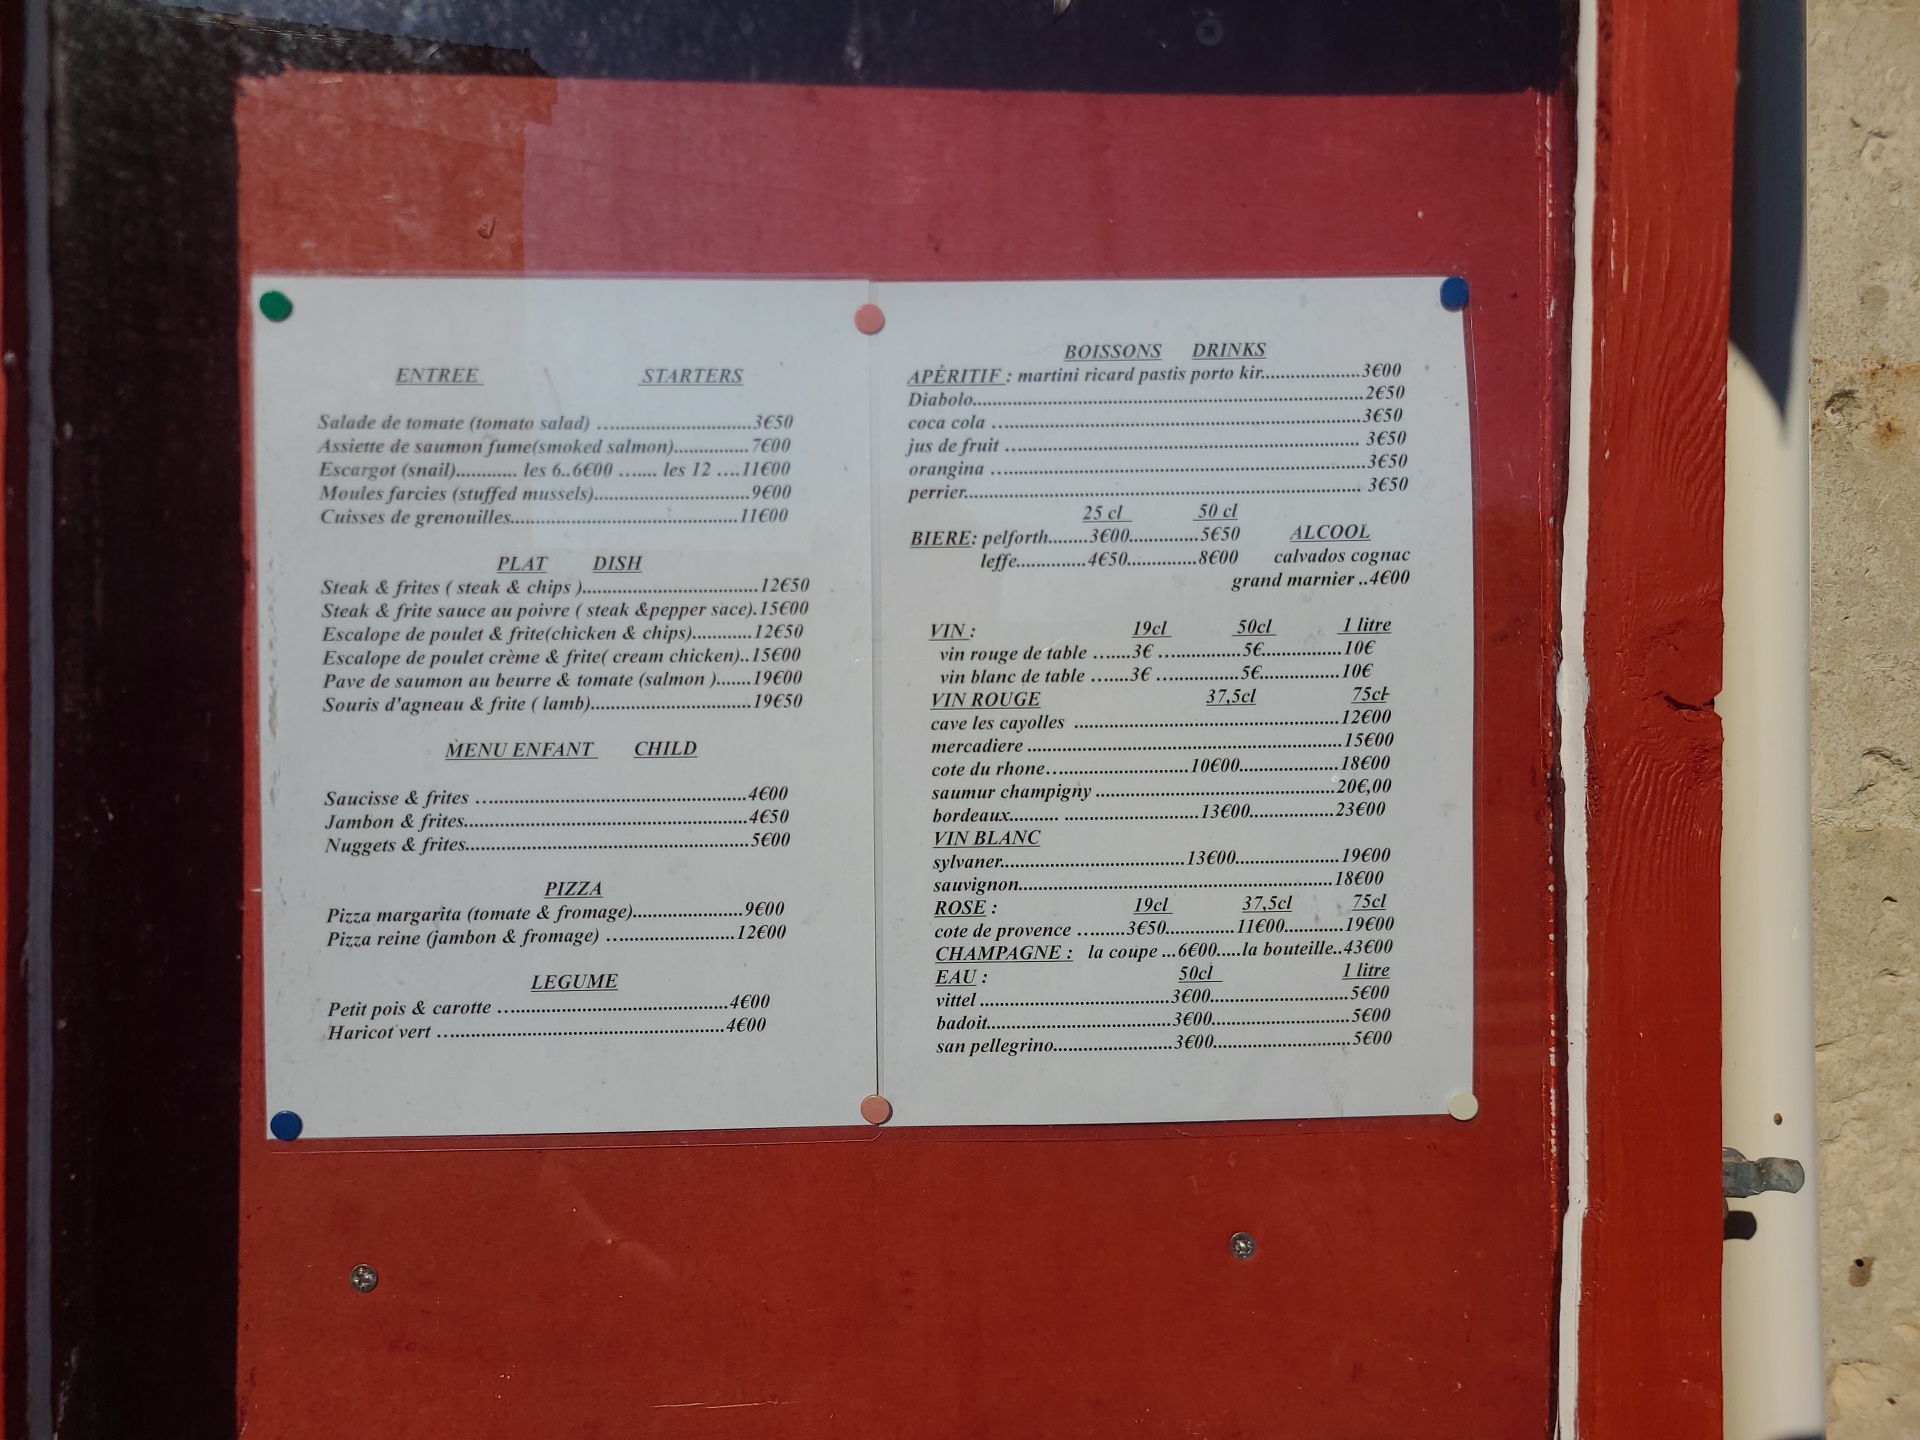 ENTREE STARTERS
Salade de tomate (tomato salad) ................................3€50
Assiette de saumon fume(smoked salmon).............7€00
Escargot (snail)............ les 6..6€00 ....... les 12 ....11€00
Moules farcies (stuffed mussels)...........................9€00
Cuisses de grenouilles.......................................11€00
PLAT DISH
Steak & frites ( steak & chips )...............................12€50
Steak & frite sauce au poivre ( steak &pepper sace).15€00
Escalope de poulet & frite(chicken & chips)...........12€50
Escalope de poulet crème & frite( cream chicken)..15€00
Pave de saumon au beurre & tomate (salmon ).......19€00
Souris d'agneau & frite ( lamb)............................19€50
MENU ENFANT CHILD
Saucisse & frites ................................................4€00
Jambon & frites..................................................4€50
Nuggets & frites..................................................5€00
PIZZA
Pizza margarita (tomate & fromage)...................9€00
Pizza reine (jambon & fromage) .......................12€00
LEGUME
Petit pois & carotte ........................................4€00
Haricot vert ..................................................4€00
BOISSONS DRINKS
APÉRITIF : martini ricard pastis porto kir....................3€00
Diabolo.....................................................................2€50
coca cola ..................................................................3€50
jus de fruit ................................................................ 3€50
orangina ...................................................................3€50
perrier....................................................................... 3€50
25 cl 50 cl
BIERE: pelforth........3€00.............5€50 ALCOOL
leffe.............4€50.............8€00 calvados cognac
grand marnier ..4€00
VIN : 19cl 50cl 1 litre
vin rouge de table .......3€ ...............5€..............10€
vin blanc de table .......3€ ...............5€..............10€
VIN ROUGE 37,5cl 75cl
cave les cayolles ...............................................12€00
mercadiere ........................................................15€00
cote du rhone..........................10€00..................18€00
saumur champigny ...........................................20€,00
bordeaux......... ..........................13€00...............23€00
VIN BLANC
sylvaner.................................13€00...................19€00
sauvignon.........................................................18€00
ROSE : 19cl 37,5cl 75cl
cote de provence ........3€50.............11€00..........19€00
CHAMPAGNE : la coupe ...6€00.....la bouteille..43€00
EAU : 50cl 1 litre
vittel ..................................3€00.........................5€00
badoit.................................3€00.........................5€00
san pellegrino......................3€00.........................5€00